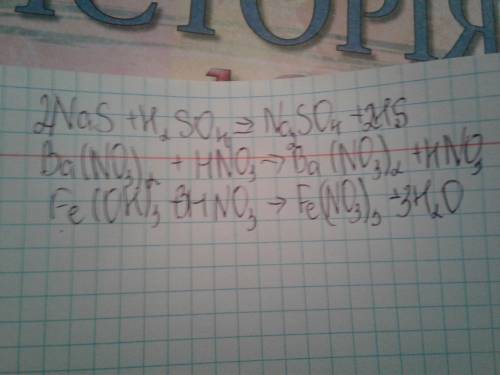 ІСТОРІЯ
2NaS + H₂SO₄ ⇒ Na₂SO₄ + 2HS
Ba(NO₃)₂ + HNO₃ → Ba(NO₃)₂ + HNO₃
Fe(OH)₃ + 3HNO₃ → Fe(NO₃)₃ + 3H₂O